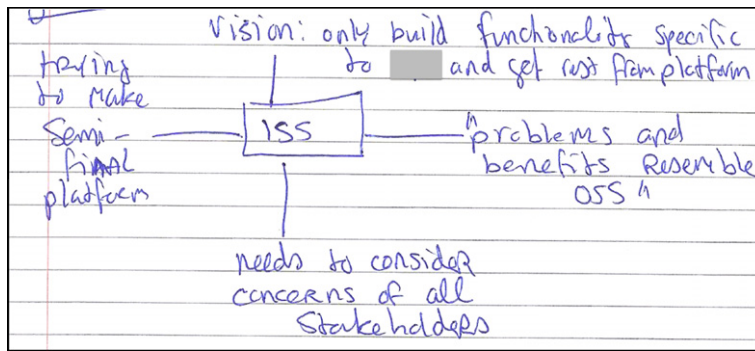 Vision: only build functionality specific
to and get rest from platform
trying
to make
Semi-
final
platform
ISS
"problems and
benefits Resemble
OSS"
needs to consider
concerns of all
Stakeholders